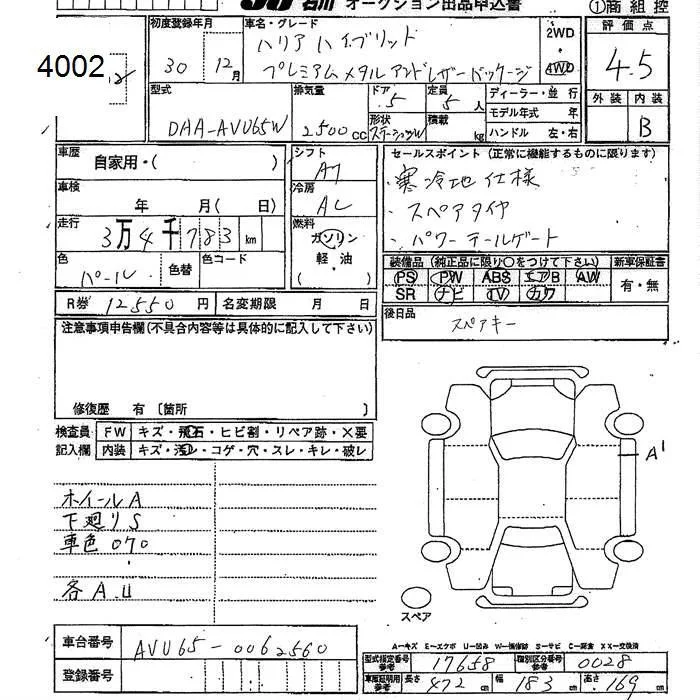 石川 オークション出品申込書
①商 組 控
4002
初度登録年月
30年 12月
車名・グレード
ハリアハイブリッド
プレミアムメタルアンドレザーパッケージ
2WD
4WD
評価点
4.5
外装 内装
B
型式
DAA-AVU65W
排気量
2500cc
ドア 5
形状 ステーションW
定員 5人
積載 kg
ディーラー・並行
モデル年式 年
ハンドル 左・右
車歴 自家用・( )
車検 年 月( 日)
走行 3万4千783km
色 パール 色替 色コード
シフト
AT
冷房
AC
燃料
ガソリン
軽・油
( )
セールスポイント(正常に機能するものに限ります)
・寒冷地仕様
・スペアタイヤ
・パワーテールゲート
装備品(純正品に限り○をつけて下さい) 新車保証書
PS PW ABS エアB AW 有・無
SR ナビ TV カワ
R券 12550円 名変期限 月 日
後日品 スペアキー
注意事項申告欄(不具合内容等は具体的に記入して下さい)
修復歴 有〔箇所
検査員 記入欄
FW キズ・飛石・ヒビ割・リペア跡・×要
内装 キズ・汚レ・コゲ・穴・スレ・キレ・破レ
ホイールA
下廻りS
車色070
各A.U
A1
スペア
A-キズ E-エクボ U-凹み W-補修跡 S-サビ C-腐食 XX-交換済
車台番号 AVU65-0062560
登録番号
型式指定番号 参考 17658 類別区分番号 参考 0028
車庫証明用 参考 長さ 472cm 幅 183cm 高さ 169